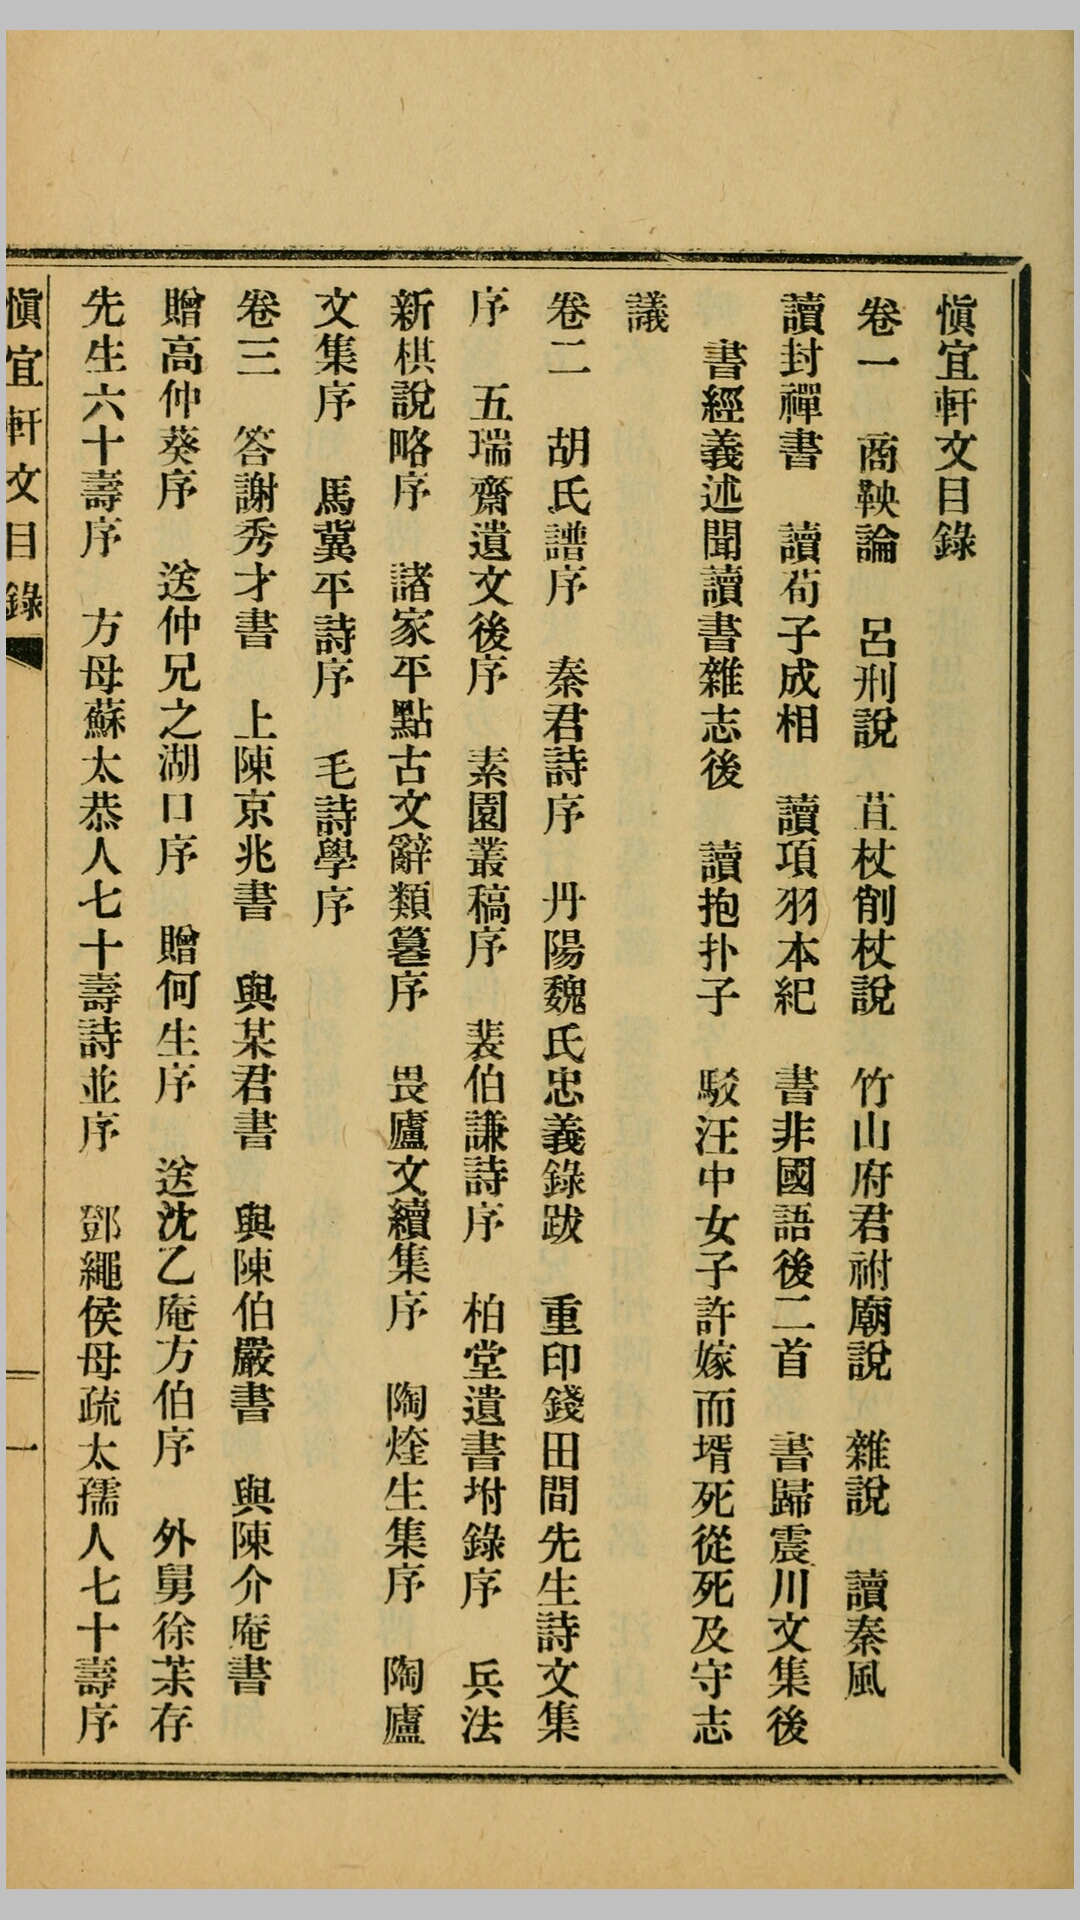 愼宜軒文目錄
卷一　商鞅論　呂刑說　苴杖削杖說　竹山府君祔廟說　雜說　讀秦風
讀封禪書　讀荀子成相　讀項羽本紀　書非國語後二首　書歸震川文集後
書經義述聞讀書雜志後　讀抱扑子　駁汪中女子許嫁而壻死從死及守志
議
卷二　胡氏譜序　秦君詩序　丹陽魏氏忠義錄跋　重印錢田間先生詩文集
序　五瑞齋遺文後序　素園叢稿序　裴伯謙詩序　柏堂遺書坿錄序　兵法
新棋說略序　諸家平點古文辭類篹序　畏廬文續集序　陶烇生集序　陶廬
文集序　馬冀平詩序　毛詩學序
卷三　答謝秀才書　上陳京兆書　與某君書　與陳伯嚴書　與陳介庵書
贈高仲葵序　送仲兄之湖口序　贈何生序　送沈乙庵方伯序　外舅徐茮存
先生六十壽序　方母蘇太恭人七十壽詩並序　鄧繩侯母疏太孺人七十壽序
愼宜軒文目錄　一